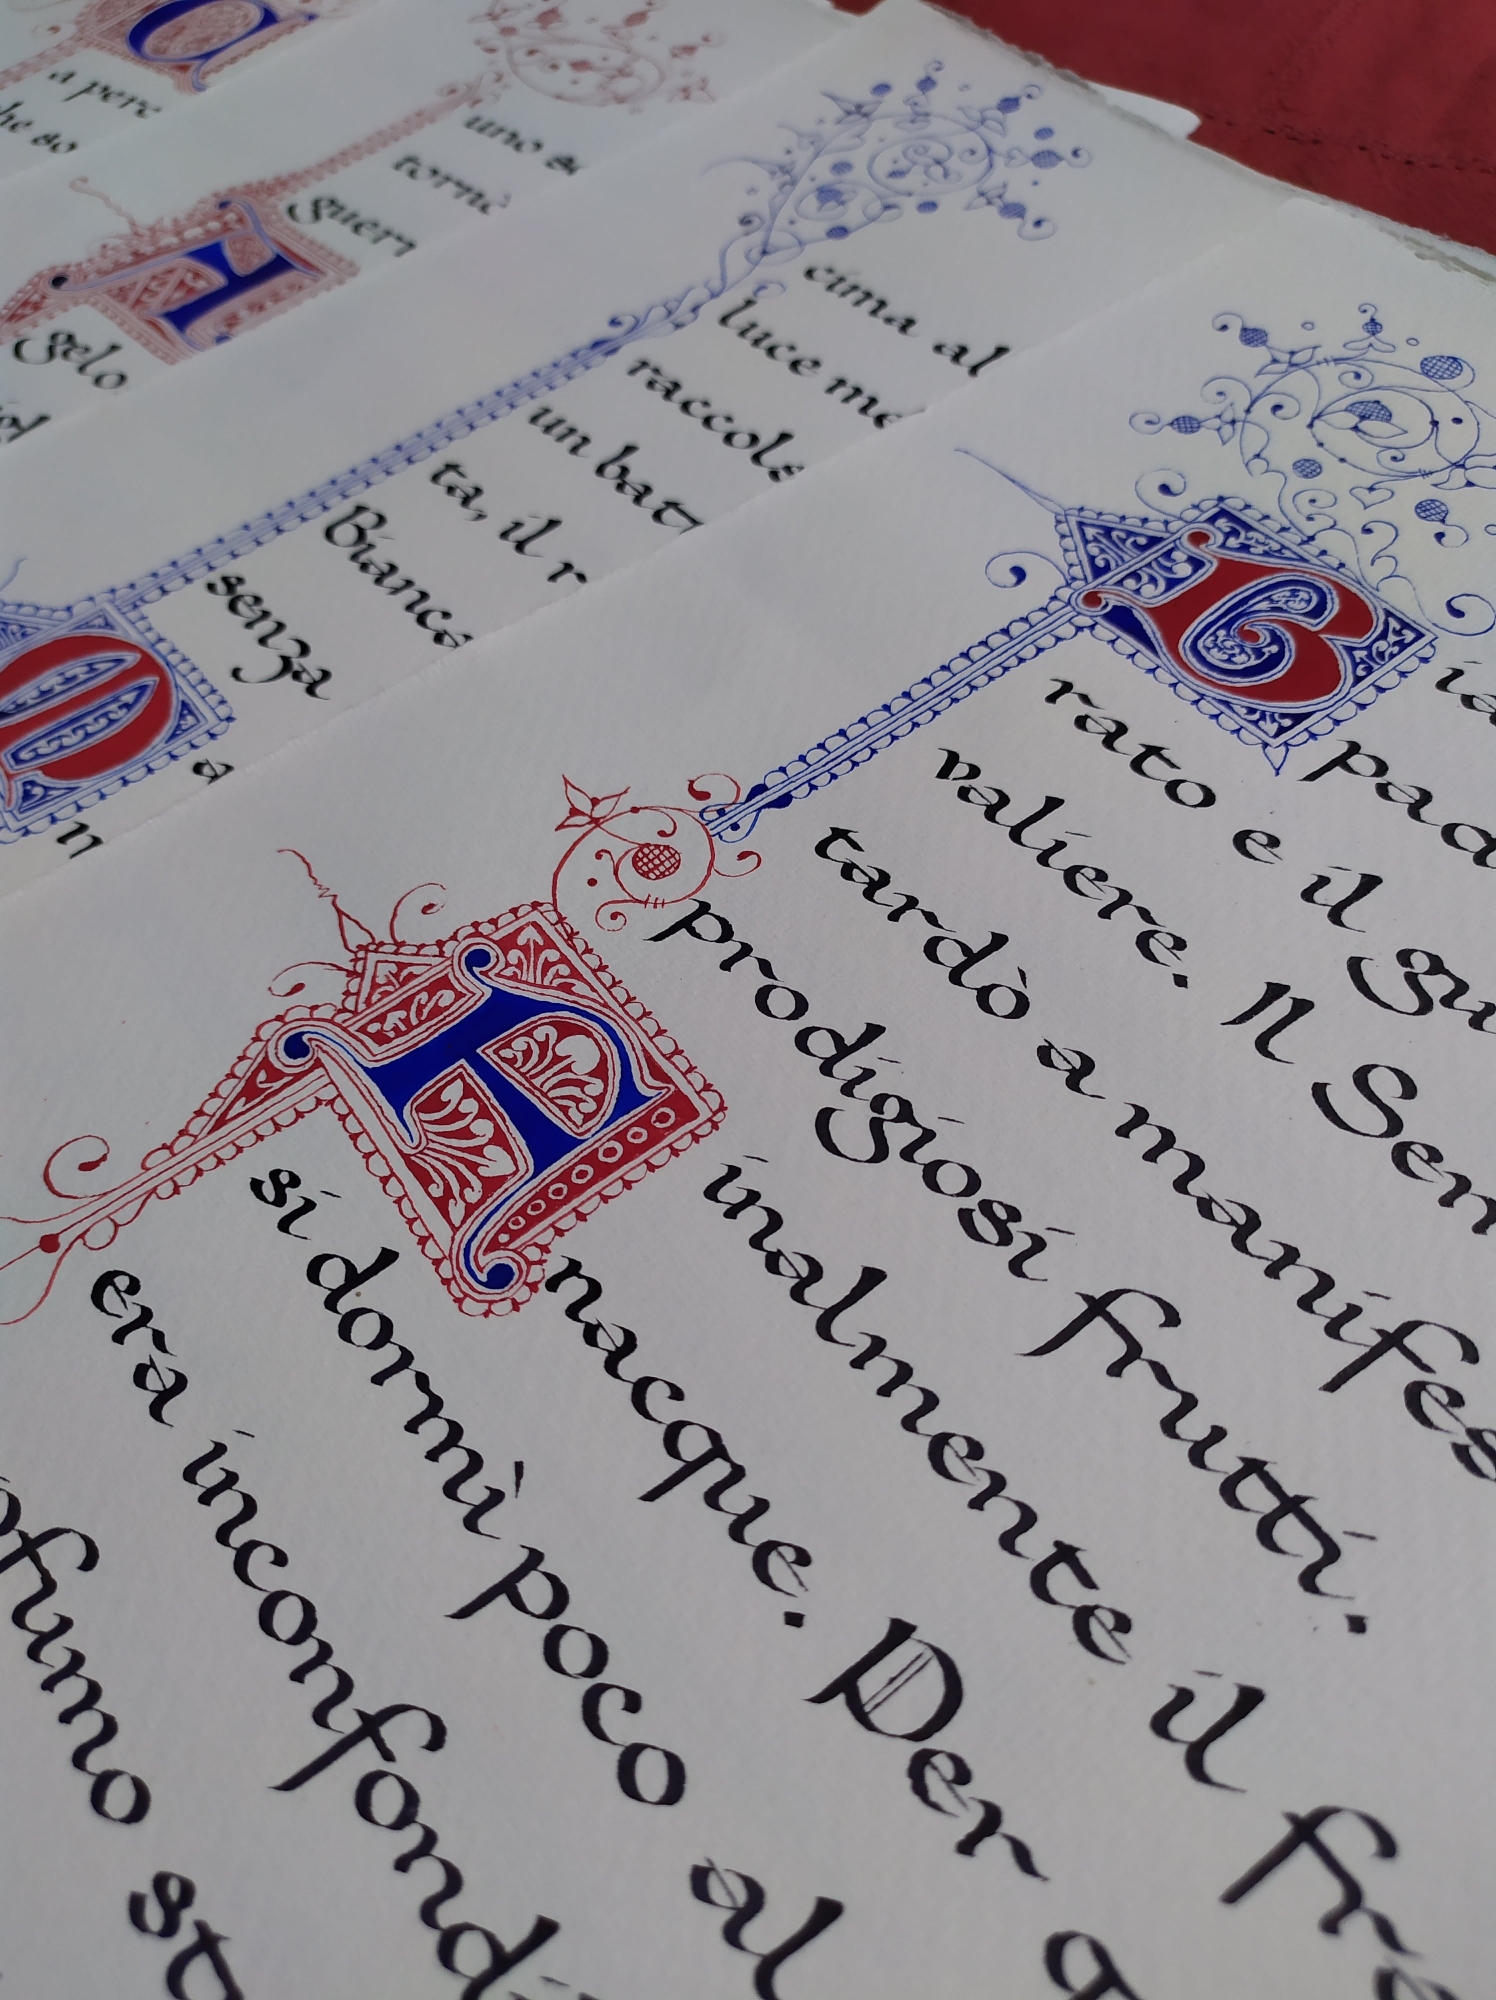 a pere
he so
uno s
torn
guerr
gelo
cima al
luce me
raccols
un batt
ta, il r
Bianco
senza
a
n
Bia
pad
rato e il gu
valiere. Il Sem
tardò a manifes
prodigiosi frutti.
Finalmente il fre
nacque. Per q
si dormì poco al
era inconfondi
ofumo st